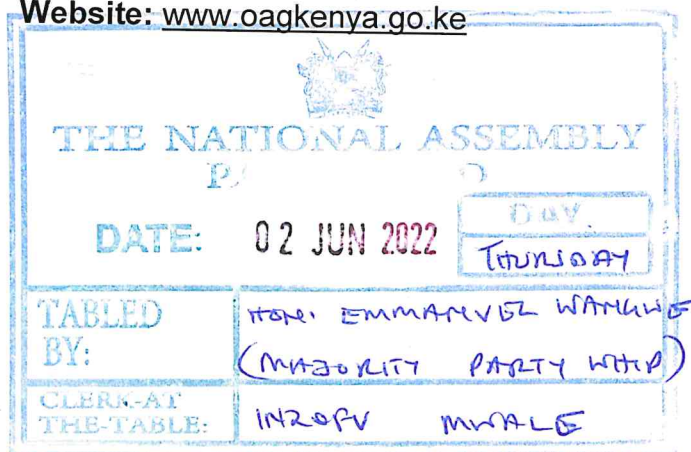 Website: www.oagkenya.go.ke
THE NATIONAL ASSEMBLY
DATE: 02 JUN 2022
DAY
THURSDAY
TABLED BY:
HON. EMMANUEL WANGWE
(MAJORITY PARTY WHIP)
CLERK-AT THE-TABLE:
MWALE